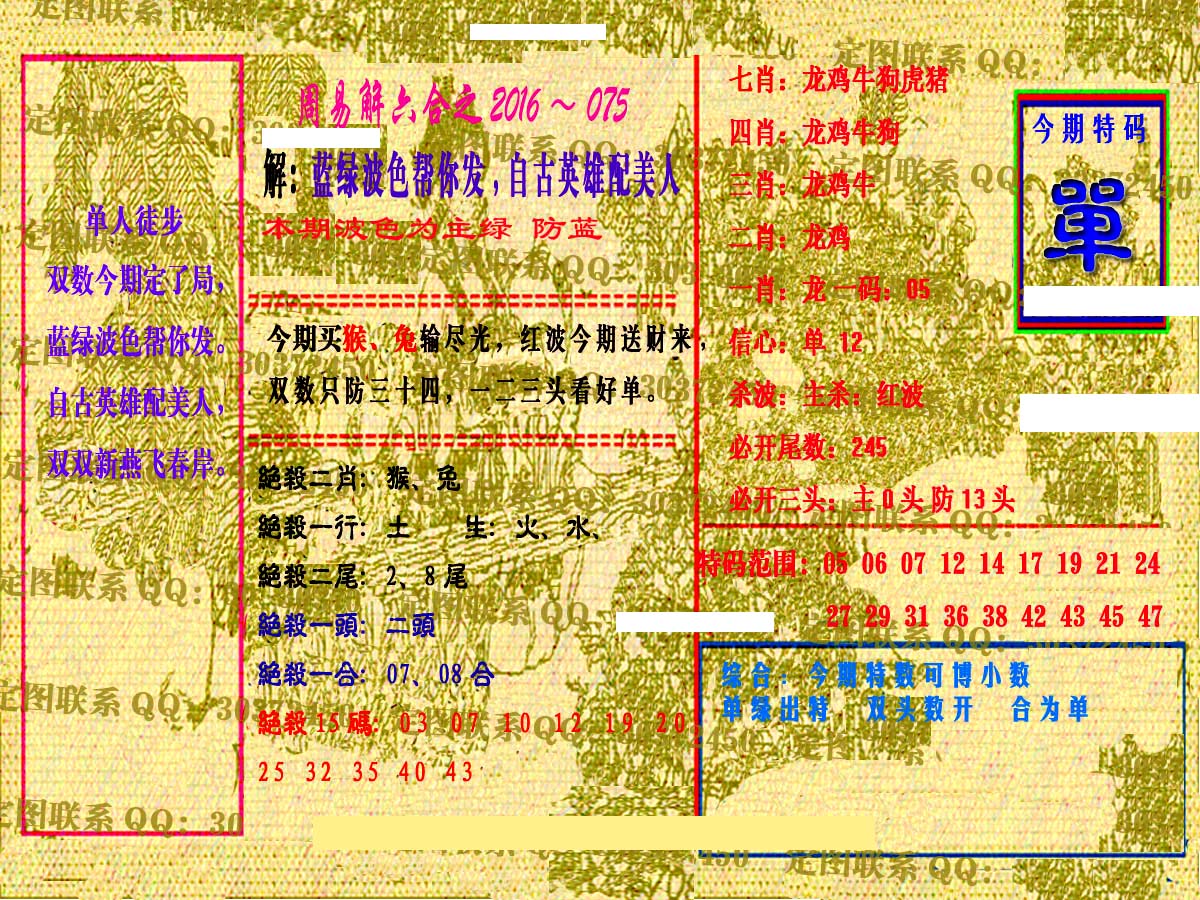 周易解六合之 2016 ～ 075
解：蓝绿波色帮你发，自古英雄配美人
本期波色为主绿 防蓝
单人徒步
双数今期定了局，
蓝绿波色帮你发。
自古英雄配美人，
双双新燕飞春岸。
今期买猴、兔输尽光，红波今期送财来，
双数只防三十四，一二三头看好单。
絕殺二肖：猴、兔
絕殺一行：土 生：火、水、
絕殺二尾：2、8 尾
絕殺一頭：二頭
絕殺一合：07、08 合
絕殺 15 碼：03 07 10 12 19 20
25 32 35 40 43
七肖：龙鸡牛狗虎猪
四肖：龙鸡牛狗
三肖：龙鸡牛
二肖：龙鸡
一肖：龙 一码：05
信心：单 12
杀波：主杀：红波
必开尾数：245
必开三头：主 0 头 防 13 头
今期特码
單
特码范围：05 06 07 12 14 17 19 21 24
27 29 31 36 38 42 43 45 47
综合：今期特数可博小数
单绿出特 双头数开 合为单
定图联系 QQ：